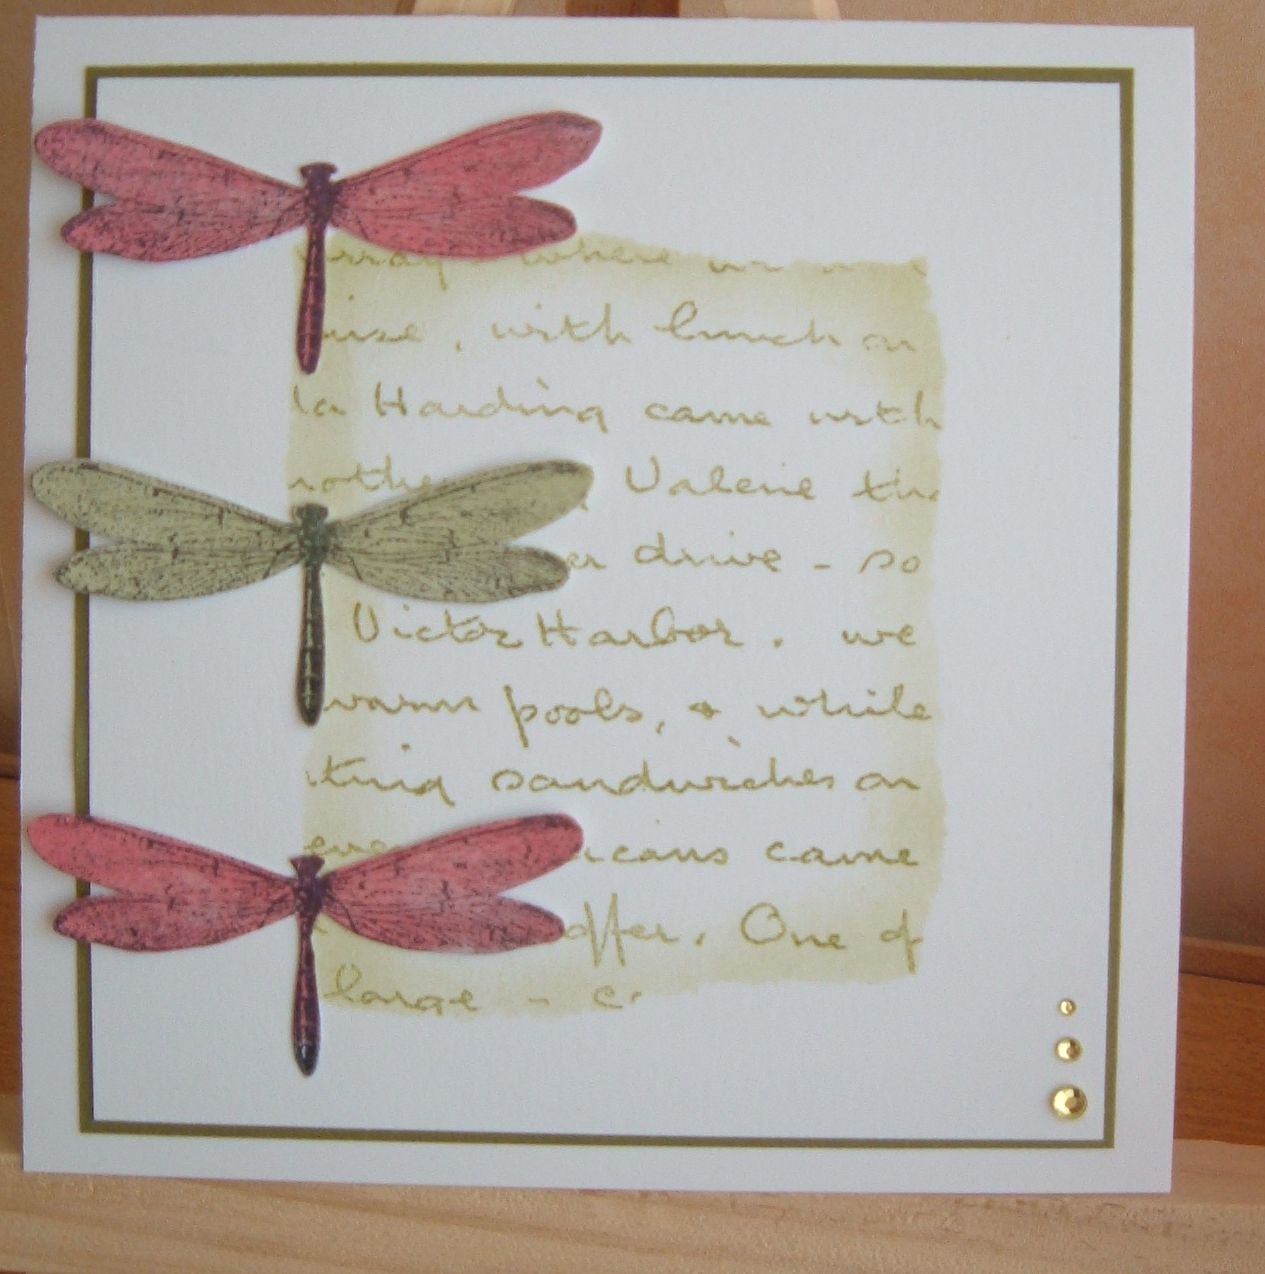 where
, with lunch on
Harding came with
Valerie
drive - so
Victor Harbor. we
warm pools, & while
sandwiches on
came
offer. One of
large -